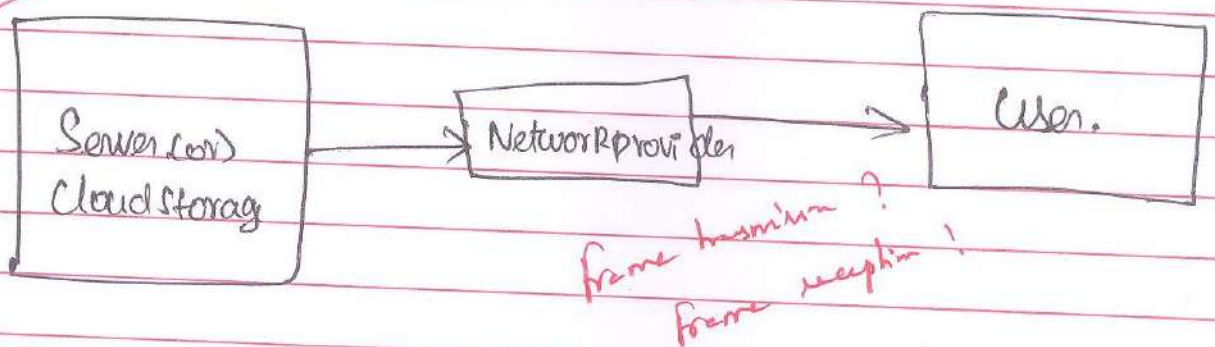 Server (or)
Cloud Storag
Network Provider
User.
frame trasmission ?
frame reception !